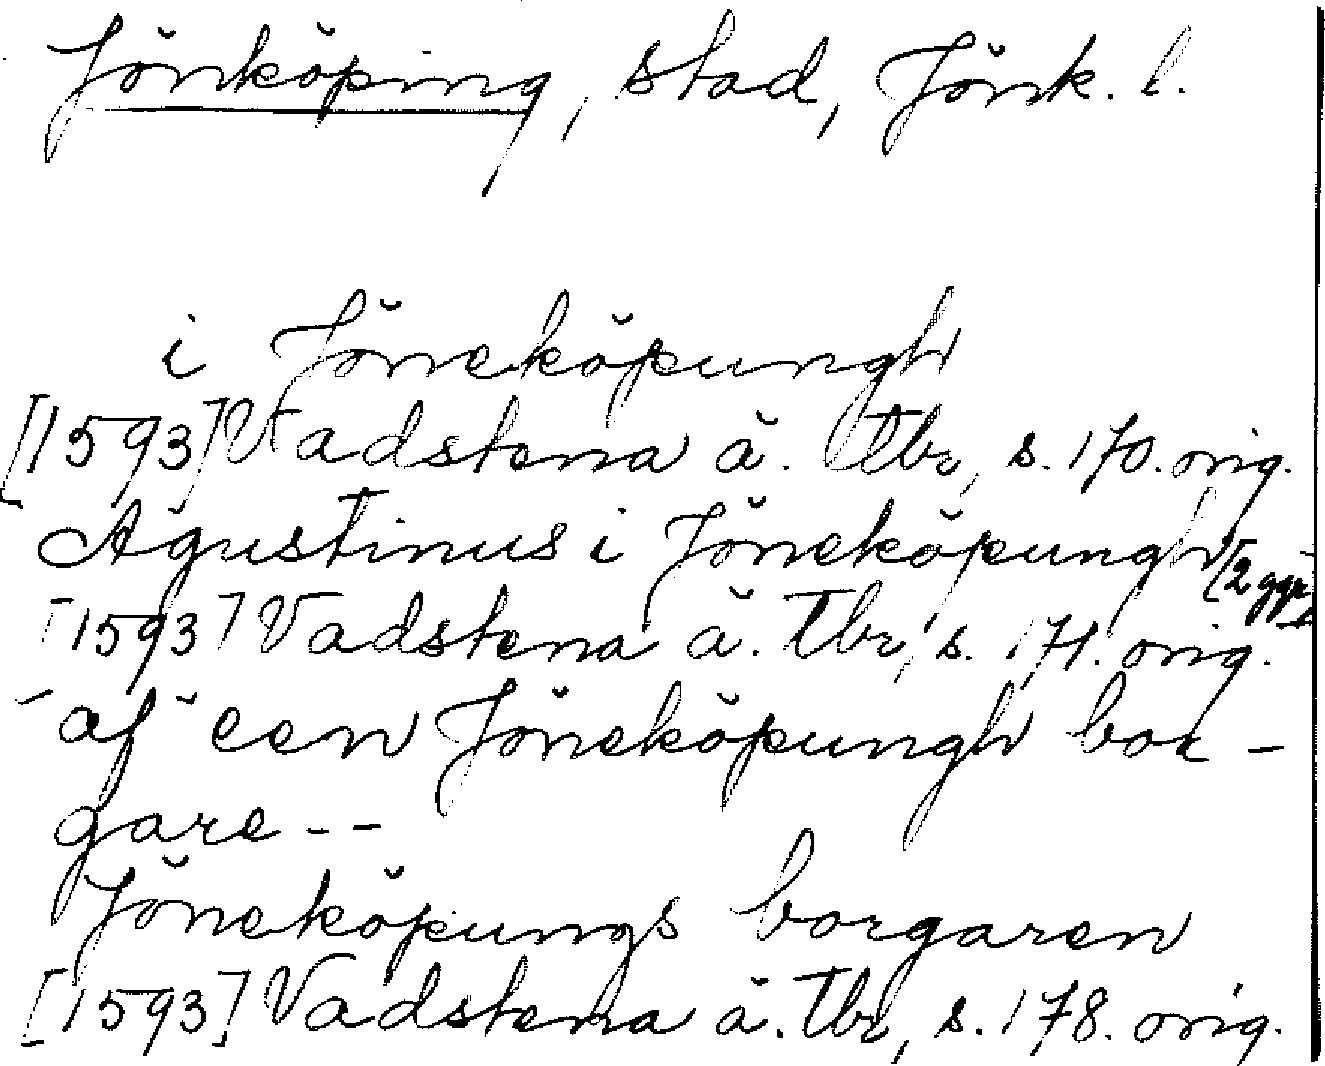 Jönköping, stad, Jönk. l.
i Jöneköpungh
[1593] Vadstena ä. Tbr, s. 170. orig.
Agustinus i Jöneköpungh [2 ggr]
[1593] Vadstena ä. Tbr, s. 171. orig.
af een Jöneköpungh bor-
gare--
Jöneköpungs borgaren
[1593] Vadstena ä. Tbr, s. 178. orig.